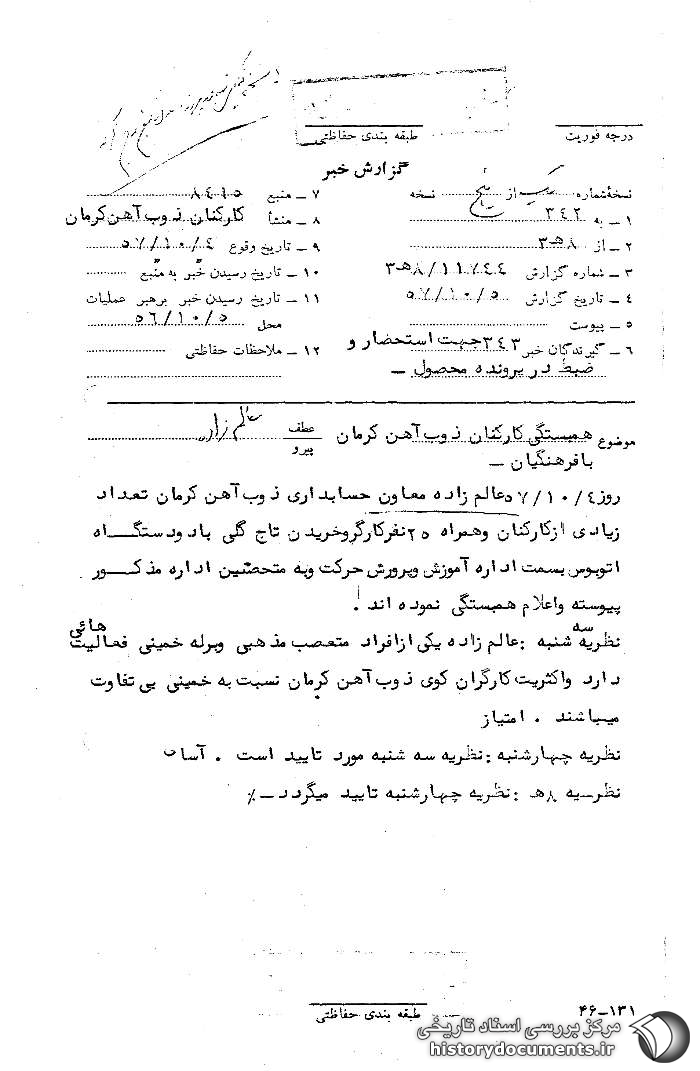 درجه فوریت
طبقه بندی حفاظتی
گزارش خبر
نسخهٔ شماره یک از پنج نسخه
۱ – به ۳۴۲
۲ – از ۸هـ۳
۳ – شماره گزارش ۱۱۷۴۴/۸هـ۳
۴ – تاریخ گزارش ۵۷/۱۰/۵
۵ – پیوست
۶ – گیرندگان خبر ۳۴۳ جهت استحضار و
ضبط در پرونده محصول –
۷ – منبع ۸۴۱۵
۸ – منشأ کارکنان ذوب آهن کرمان
۹ – تاریخ وقوع ۵۷/۱۰/۴
۱۰ – تاریخ رسیدن خبر به منبع
۱۱ – تاریخ رسیدن خبر برهبر عملیات
محل ۵۶/۱۰/۵
۱۲ – ملاحظات حفاظتی
موضوع همبستگی کارکنان ذوب آهن کرمان عطف عالم زاده
با فرهنگیان – پیرو
روز ۵۷/۱۰/۴ عالم زاده معاون حسابداری ذوب آهن کرمان تعداد
زیادی از کارکنان وهمراه ۲۵ نفر کارگر وخریدن تاج گلی با دو دستگاه
اتوبوس بسمت اداره آموزش وپرورش حرکت وبه متحصنین اداره مذکور
پیوسته واعلام همبستگی نموده اند!
نظریه سه شنبه : عالم زاده یکی از افراد متعصب مذهبی وبرله خمینی فعالیت هائی
دارد واکثریت کارگران کوی ذوب آهن کرمان نسبت به خمینی بی تفاوت
میباشند . امتیاز
نظریه چهارشنبه : نظریه سه شنبه مورد تایید است . آسا
نظریه ۸هـ : نظریه چهارشنبه تایید میگردد – ٪
طبقه بندی حفاظتی
۴۶–۱۳۱
مرکز بررسی اسناد تاریخی
historydocuments.ir